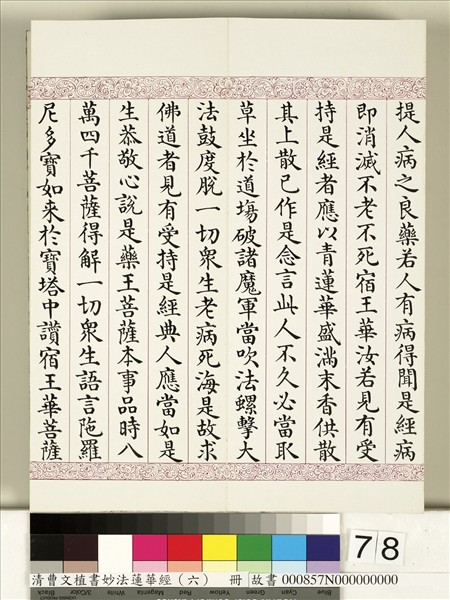 提人病之良藥若人有病得聞是經病
即消滅不老不死宿王華汝若見有受
持是經者應以青蓮華盛滿末香供散
其上散已作是念言此人不久必當取
草坐於道場破諸魔軍當吹法螺擊大
法鼓度脫一切眾生老病死海是故求
佛道者見有受持是經典人應當如是
生恭敬心說是藥王菩薩本事品時八
萬四千菩薩得解一切眾生語言陁羅
尼多寶如來於寶塔中讚宿王華菩薩
78
Black
3/Color
White
Magenta
Red
Yellow
Green
Cyan
Blue
清曹文植書妙法蓮華經（六） 冊 故書 000857N000000000